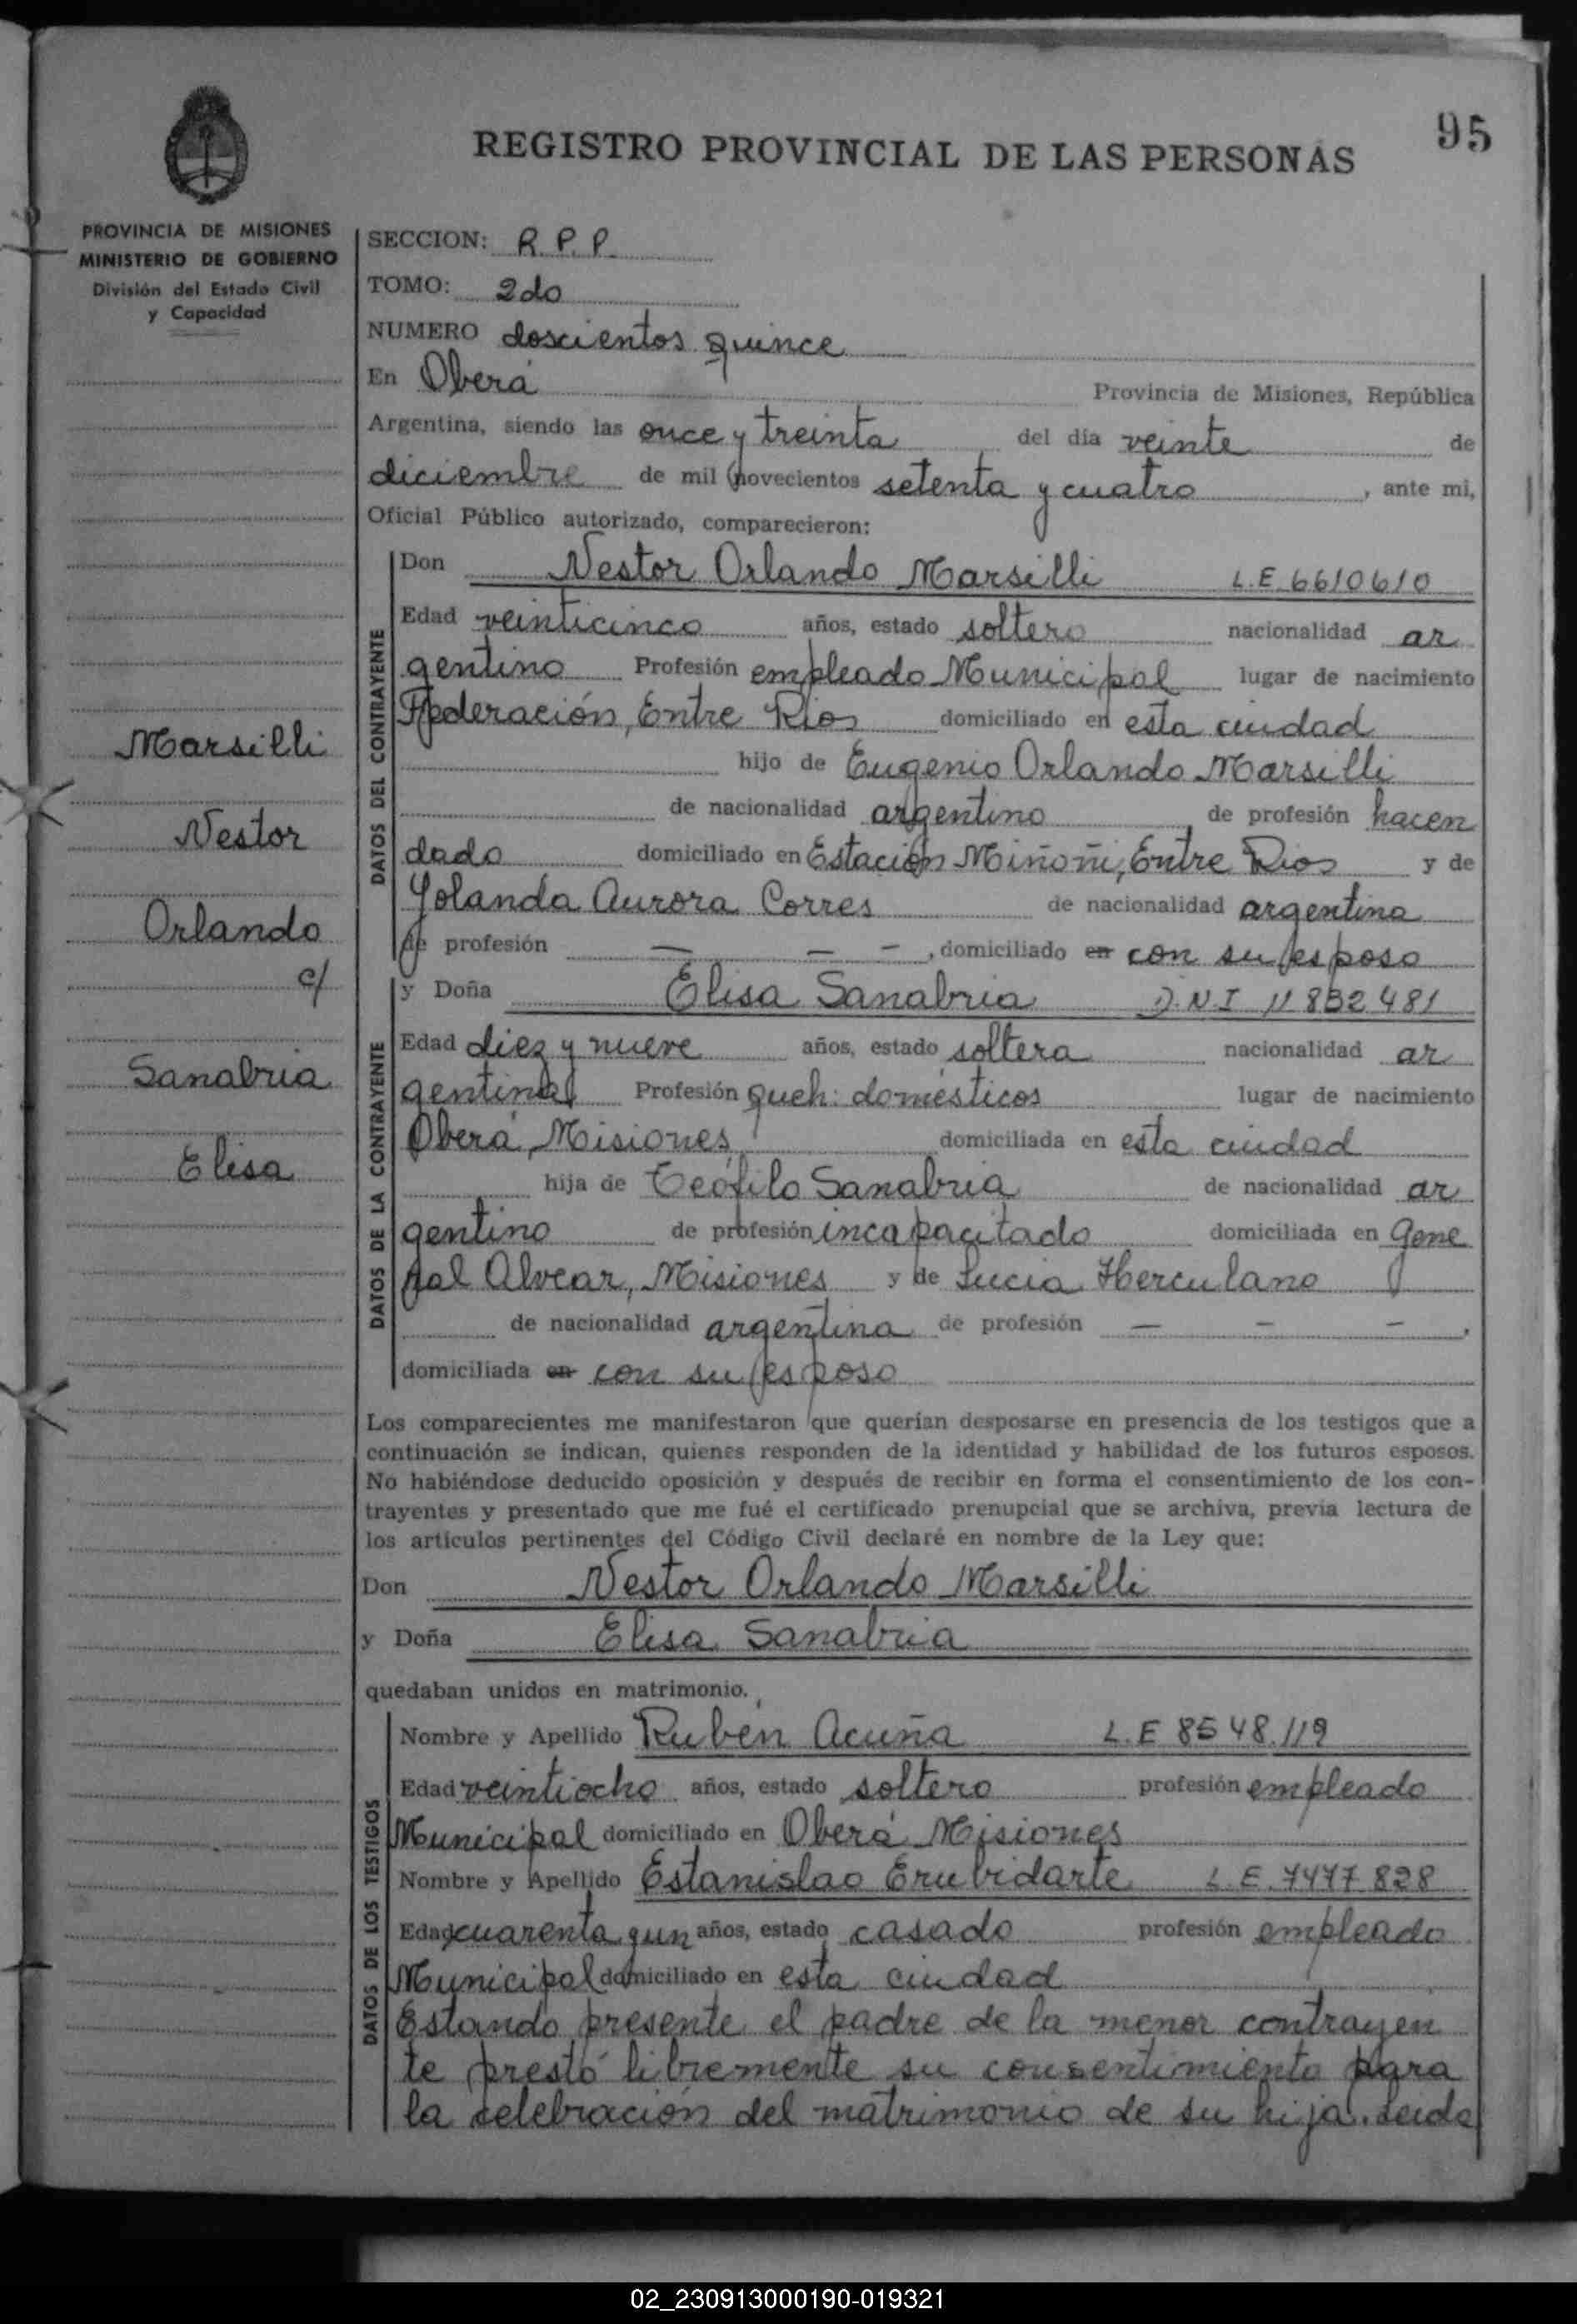 95
REGISTRO PROVINCIAL DE LAS PERSONAS
PROVINCIA DE MISIONES
MINISTERIO DE GOBIERNO
División del Estado Civil
y Capacidad
Marsilli
Nestor
Orlando
c/
Sanabria
Elisa
SECCION: R.P.P.
TOMO: 2do
NUMERO doscientos quince
En Oberá Provincia de Misiones, República
Argentina, siendo las once y treinta del día veinte de
diciembre de mil novecientos setenta y cuatro, ante mi,
Oficial Público autorizado, comparecieron:
DATOS DEL CONTRAYENTE
Don Nestor Orlando Marsilli L.E 6610610
Edad veinticinco años, estado soltero nacionalidad ar
gentino Profesión empleado Municipal lugar de nacimiento
Federación, Entre Rios domiciliado en esta ciudad
hijo de Eugenio Orlando Marsilli
de nacionalidad argentino de profesión hacen
dado domiciliado en Estación Miñoñi, Entre Rios y de
Yolanda Aurora Corres de nacionalidad argentina
de profesión — — —, domiciliado en con su esposo
DATOS DE LA CONTRAYENTE
y Doña Elisa Sanabria D.N.I 11 832 481
Edad diez y nueve años, estado soltera nacionalidad ar
gentina Profesión queh: domésticos lugar de nacimiento
Oberá, Misiones domiciliada en esta ciudad
hija de Teófilo Sanabria de nacionalidad ar
gentino de profesión incapacitado domiciliada en Gene
ral Alvear, Misiones y de Lucia Herculano
de nacionalidad argentina de profesión — — —,
domiciliada en con su esposo
Los comparecientes me manifestaron que querían desposarse en presencia de los testigos que a
continuación se indican, quienes responden de la identidad y habilidad de los futuros esposos.
No habiéndose deducido oposición y después de recibir en forma el consentimiento de los con-
trayentes y presentado que me fué el certificado prenupcial que se archiva, previa lectura de
los artículos pertinentes del Código Civil declaré en nombre de la Ley que:
Don Nestor Orlando Marsilli
y Doña Elisa Sanabria
quedaban unidos en matrimonio.
DATOS DE LOS TESTIGOS
Nombre y Apellido Rubén Acuña L.E 8548.119
Edad veintiocho años, estado soltero profesión empleado
Municipal domiciliado en Oberá Misiones
Nombre y Apellido Estanislao Erubidarte L.E. 7477 828
Edad cuarenta y un años, estado casado profesión empleado
Municipal domiciliado en esta ciudad
Estando presente el padre de la menor contrayen
te prestó libremente su consentimiento para
la celebración del matrimonio de su hija. Leida
02_230913000190-019321